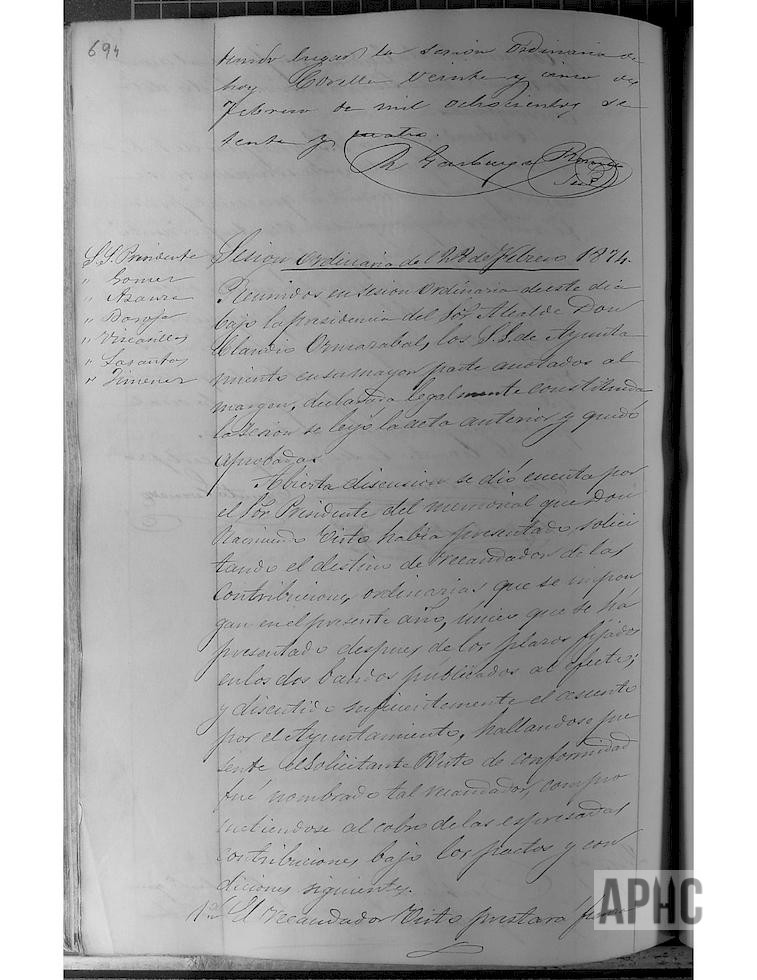 694
tenido lugar la sesion ordinaria de
hoy Corella veinte y cinco de
Febrero de mil ochocientos se
tenta y cuatro.
S.S. Presidente
" Gomez
" Azaura
" Viscasillas
" Lasantas
" Jimenez
Sesion ordinaria del 28 de Febrero 1874.
Reunidos en sesion ordinaria de este dia
bajo la presidencia del Sor Alcalde Don
Claudio Ormazabal, los S.S. de Ayunta
miento en su mayor parte anotados al
margen, declarada legalmente constituida
la sesion se leyó la acta anterior y quedó
aprobada.
Abierta discusion se dió cuenta por
el Sor Presidente del memorial que Don
Raimundo Virto habia presentado, solici
tando el destino de recaudador de las
Contribuciones ordinarias que se impon
gan en el presente año, unico que se há
presentado despues de los plazos fijados
en los dos bandos publicados al efecto;
y discutido suficientemente el asunto
por el Ayuntamiento, hallandose pre
sente el solicitante Virto de conformidad
fué nombrado tal recaudador, compro
metiendose al cobro de las espresadas
contribuciones bajo los pactos y con
diciones siguientes.
1ª El recaudador Virto prestará
APHC